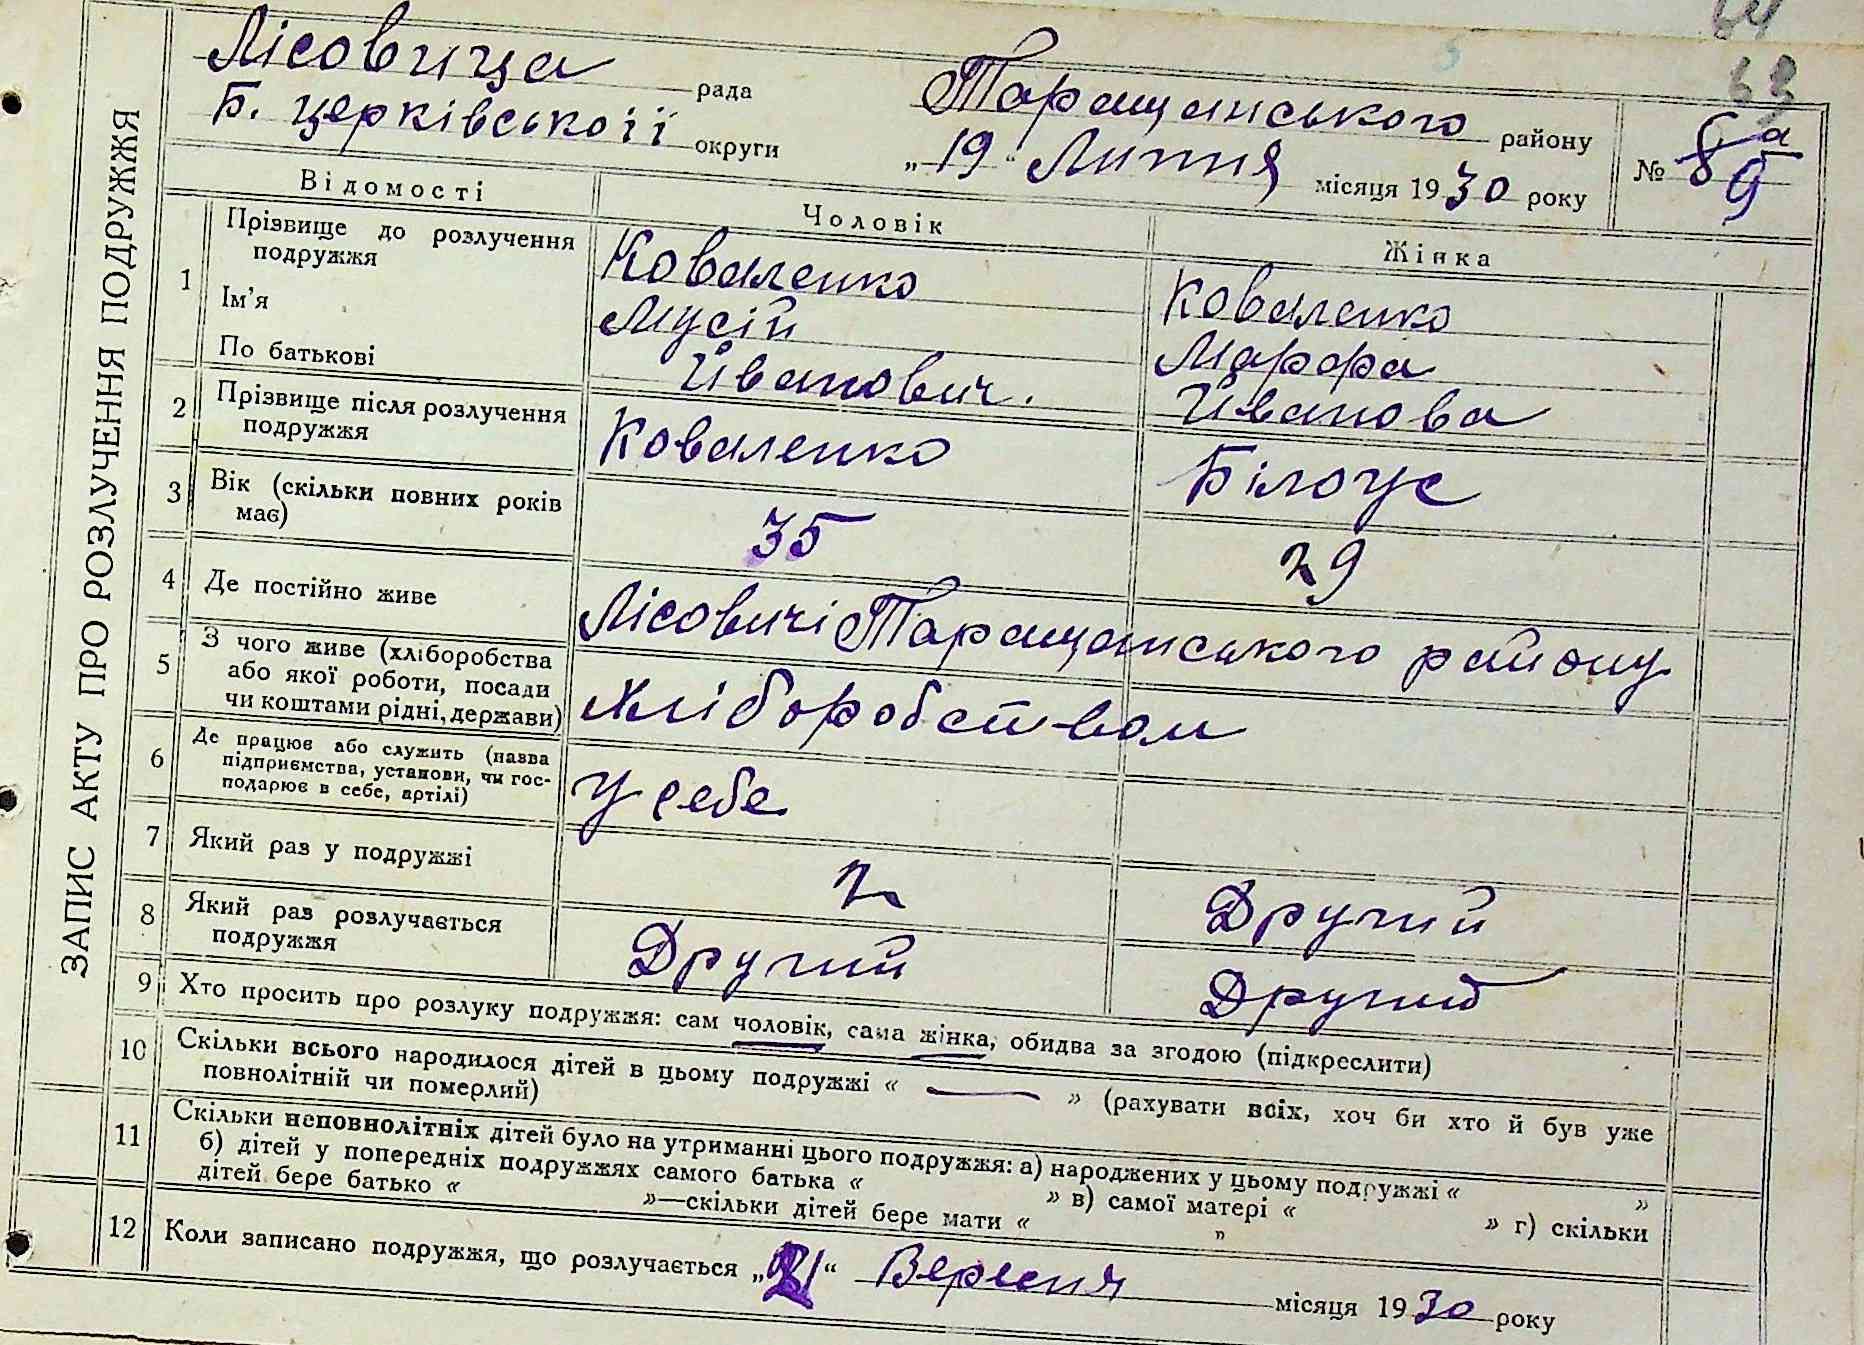 64
63
Лісовица рада Таращанського району
Б. церківськоіі округи „19“ Липня місяця 1930 року №
ЗАПИС АКТУ ПРО РОЗЛУЧЕННЯ ПОДРУЖЖЯ
Відомості Чоловік Жінка
1 Прізвище до розлучення подружжя Коваленко Коваленко
Ім'я Мусій Марфа
По батькові Йванович. Йванова
2 Прізвище після розлучення подружжя Коваленко Білоус
3 Вік (скільки повних років має) 35 29
4 Де постійно живе Лісовичі Таращанського району
5 З чого живе (хліборобства або якої роботи, посади чи коштами рідні, держави) Хліборобством
6 Де працює або служить (назва підприємства, установи, чи господарює в себе, артілі) У себе
7 Який раз у подружжі 2 Другий
8 Який раз розлучається подружжя Другий Другий
9 Хто просить про розлуку подружжя: сам чоловік, сама жінка, обидва за згодою (підкреслити)
10 Скільки всього народилося дітей в цьому подружжі « — » (рахувати всіх, хоч би хто й був уже
повнолітній чи померлий)
11 Скільки неповнолітніх дітей було на утриманні цього подружжя: а) народжених у цьому подружжі « »
б) дітей у попередніх подружжях самого батька « » в) самої матері « » г) скільки
дітей бере батько « »—скільки дітей бере мати « "
12 Коли записано подружжя, що розлучається „ “ Вересня місяця 1930 року